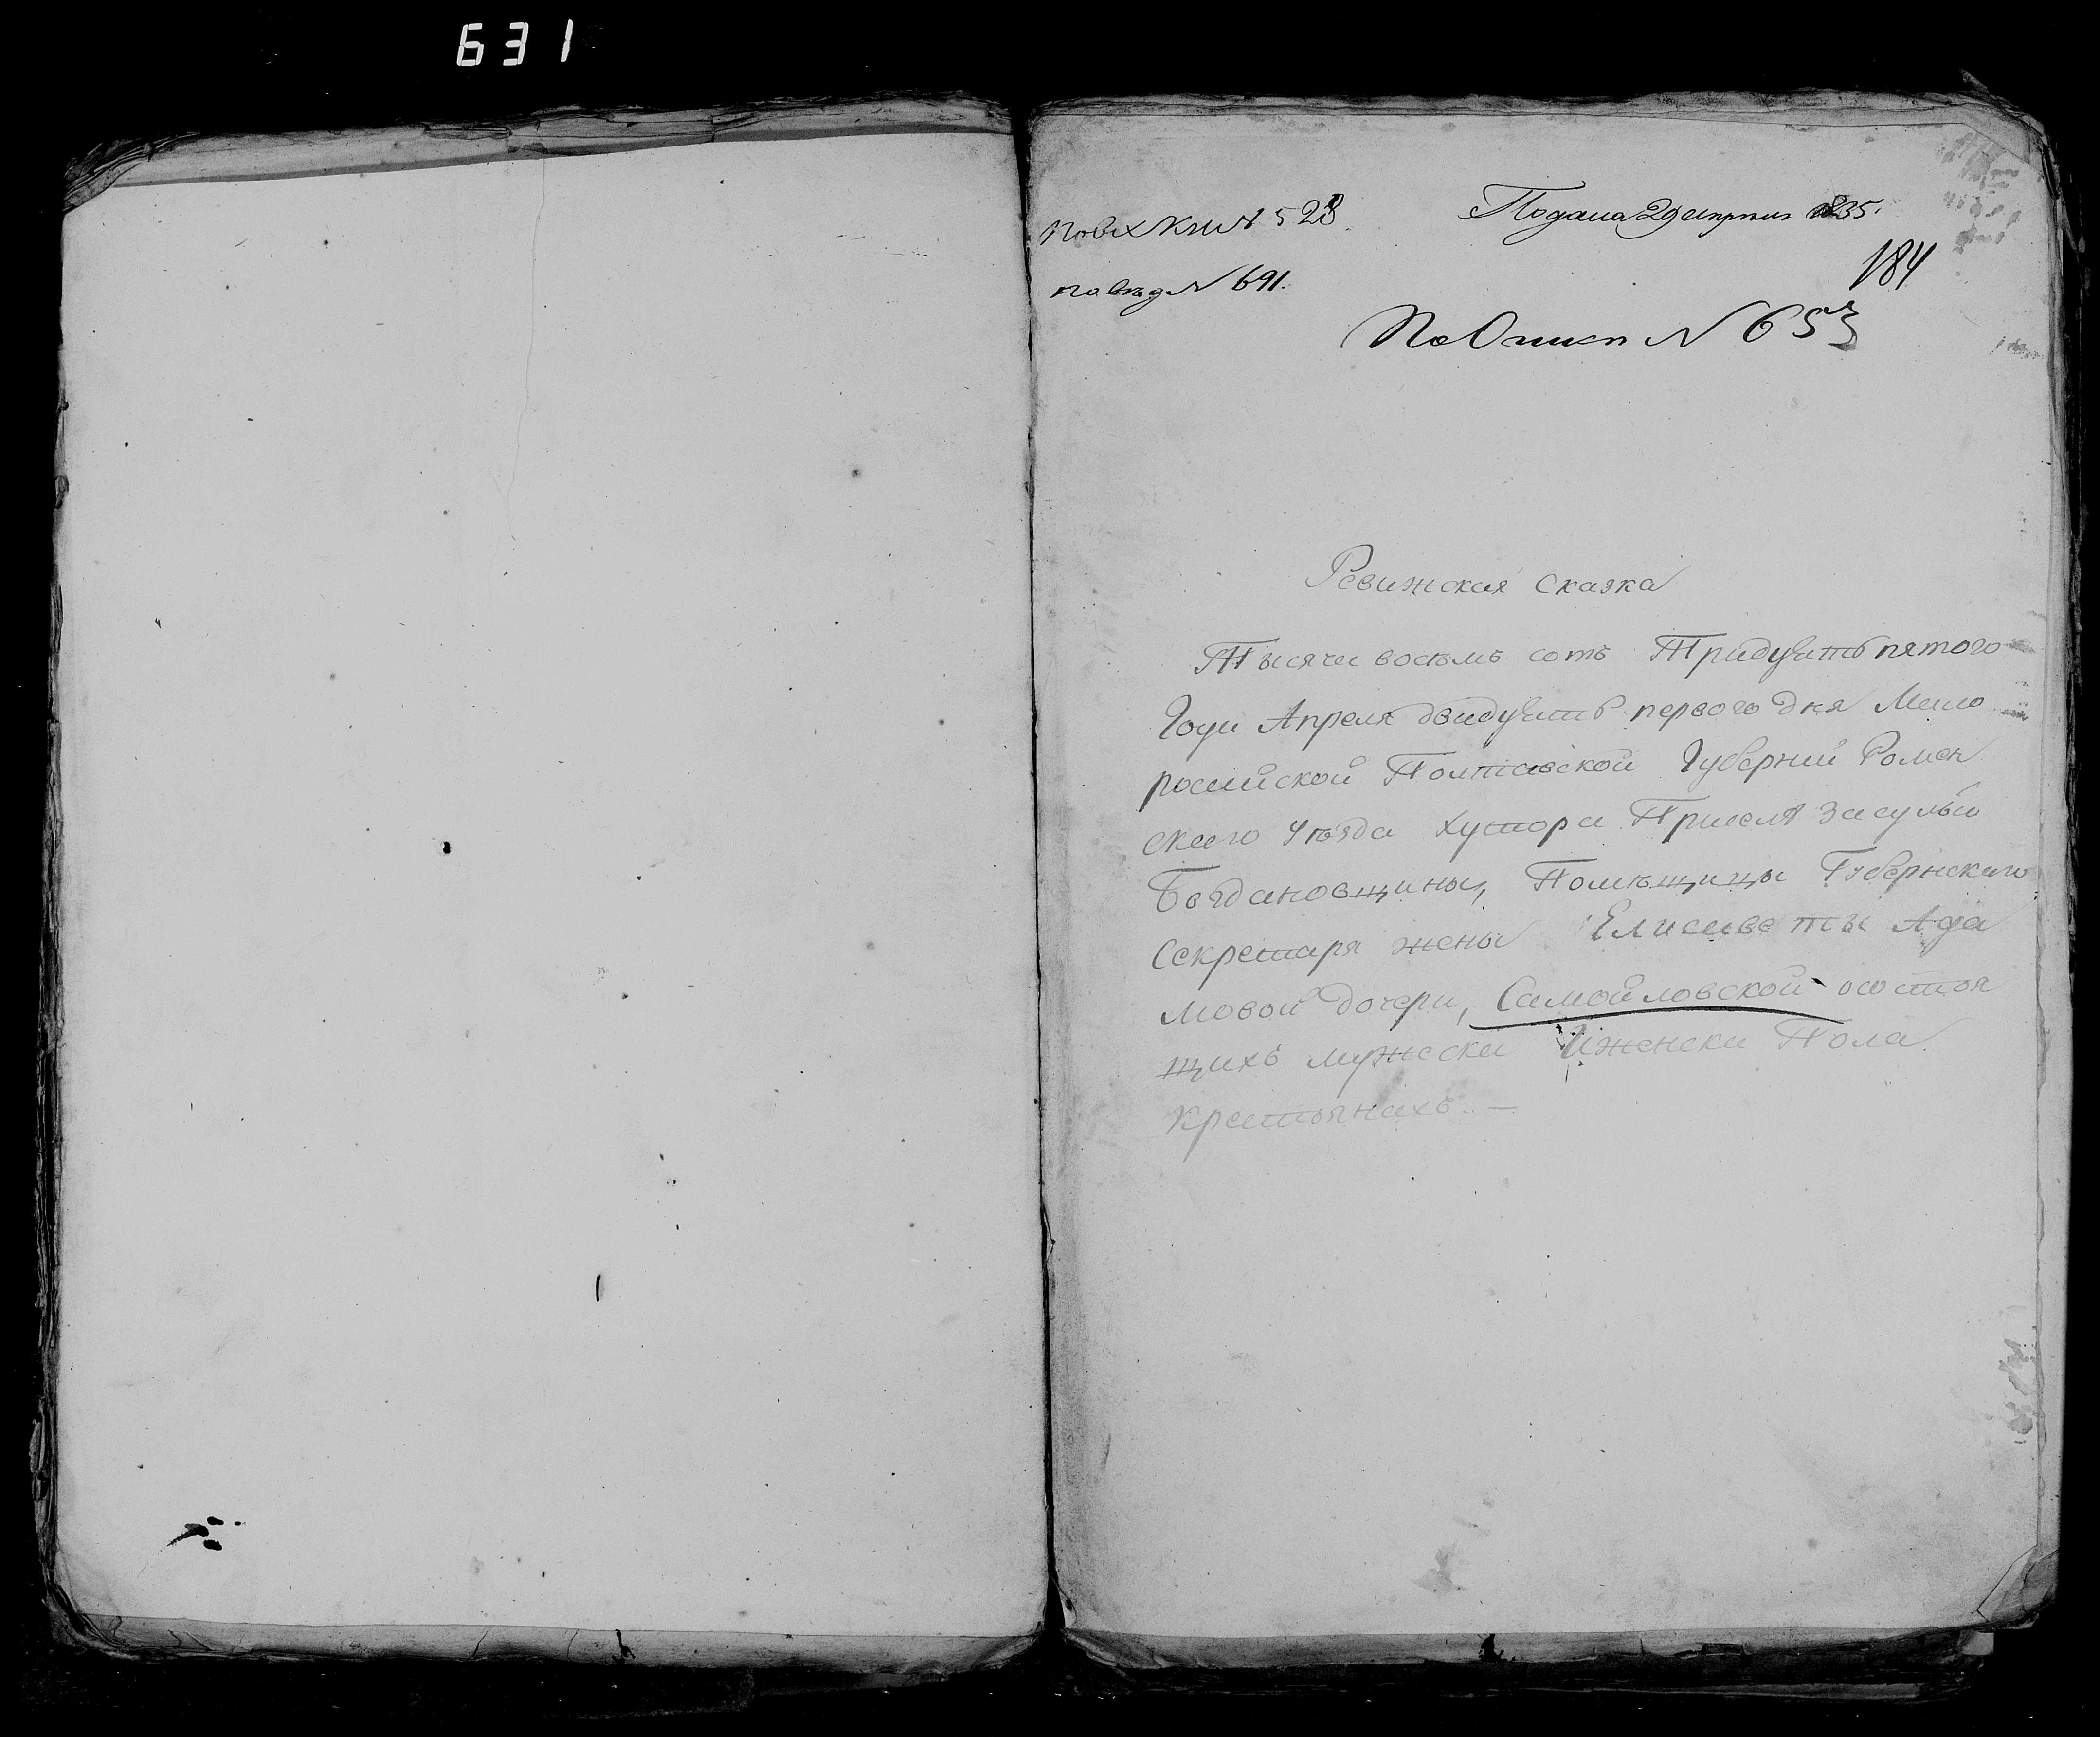 631
По вх Кни № 528
Подана 29 апреля 1835.
184
по вѣд № 691.
По Описи № 653
Ревижская сказка
Тысяча восемь сотъ Тридцать пятого
Года Апреля двадцать первого дня Мало
росийской Полтавской Губернии Ромен
скаго уѣзда хутора При селѣ Засулью
Богдановщины, Помѣщицы Губернскаго
Секретаря жены Елисаветы Ада
мовой дочери, Самойловской осостоя
щихъ мужеска И женска Пола
крестьянахъ. —